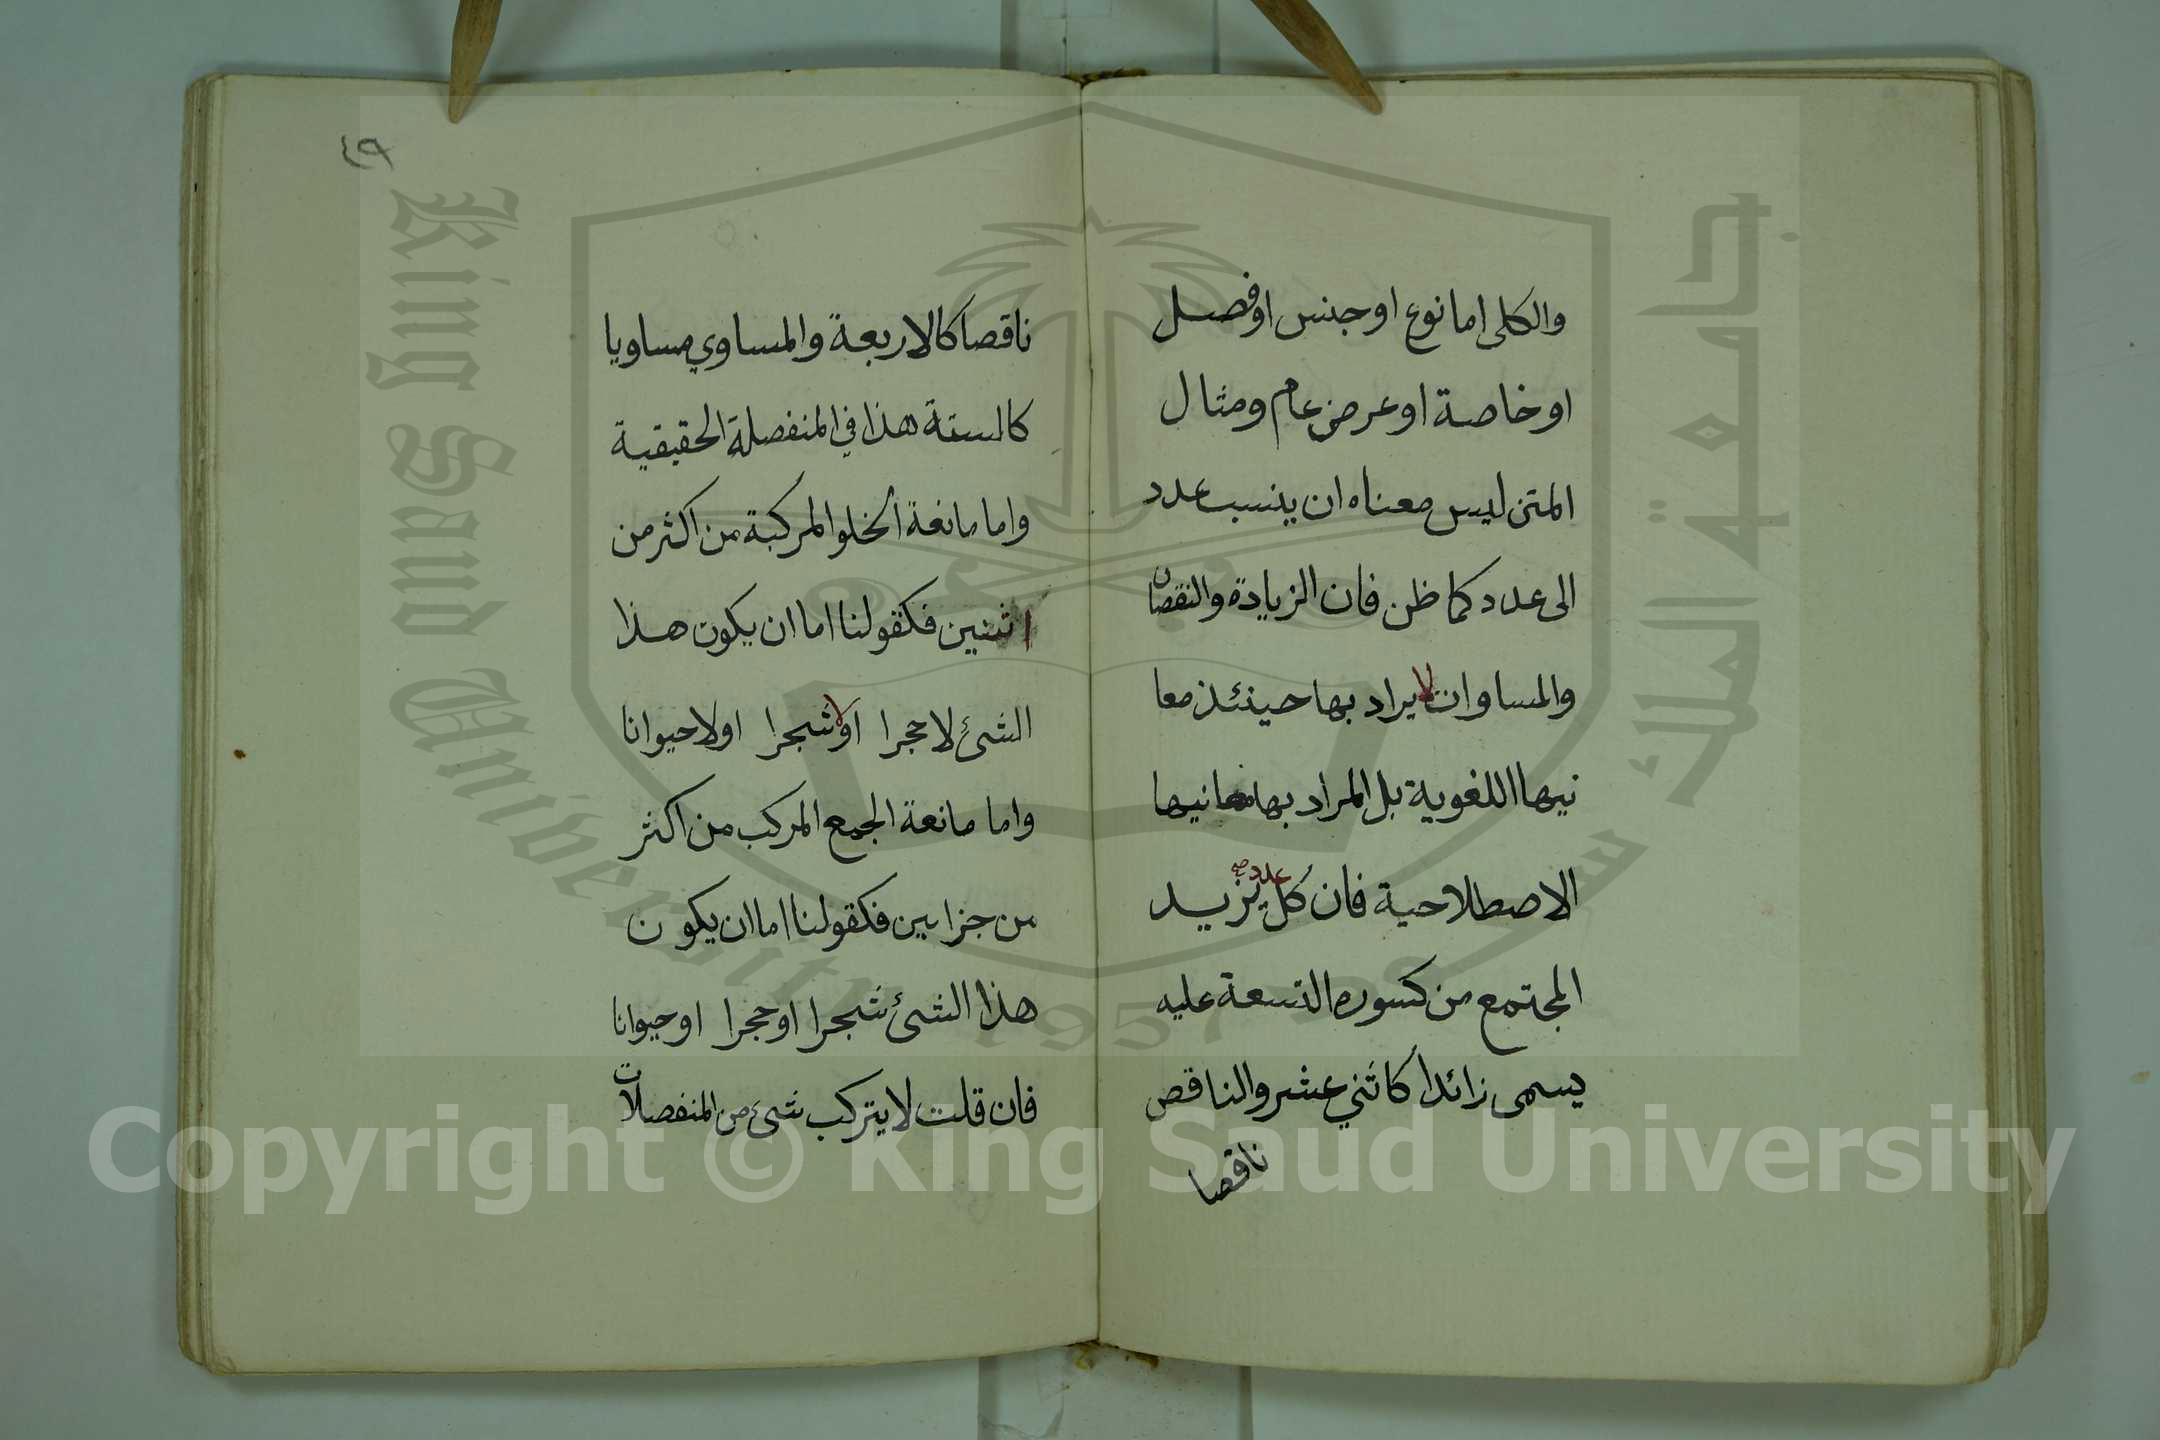 والكلى اما نوع او جنس او فصل
او خاصة او عرض عام ومثال
المتن ليس معناه ان ينسب عدد
الى عدد كما ظن فان الزيادة والنقصان
والمساوات لا يراد بها حينئذ معا
نيها اللغوية بل المراد بها معانيها
الاصطلاحية فان كل عدد يزيد
المجتمع من كسوره التسعة عليه
يسمى زائدا كاثني عشر والناقص
ناقصا
٤٩
ناقصا كالاربعة والمساوي مساويا
كالستة هذا في المنفصلة الحقيقية
واما مانعة الخلو المركبة من اكثر من
اثنين فكقولنا اما ان يكون هذا
الشئ لا حجرا او لا شجرا او لا حيوانا
واما مانعة الجمع المركب من اكثر
من جزايين فكقولنا اما ان يكون
هذا الشئ شجرا او حجرا او حيوانا
فان قلت لا يتركب شئ من المنفصلات
King Saud University
جامعة الملك سعود
1957
Copyright © King Saud University